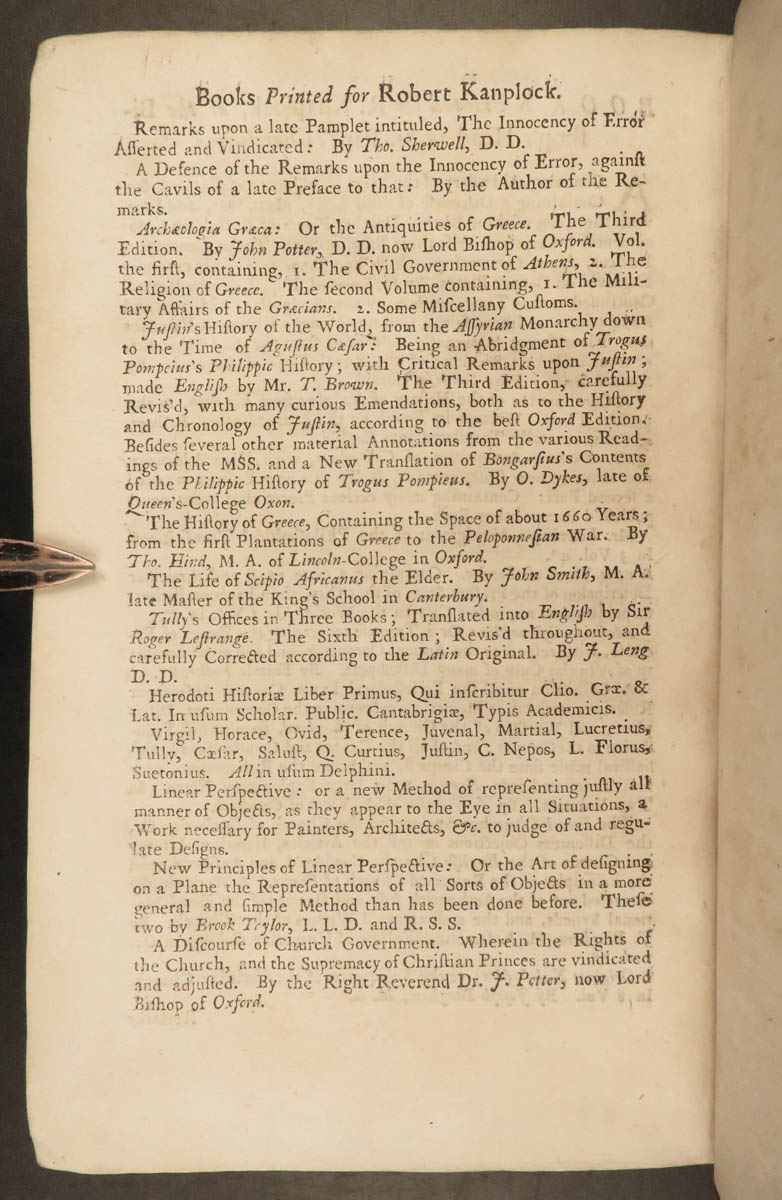 Books Printed for Robert Kanplock.
Remarks upon a late Pamplet intituled, The Innocency of Error
Aſſerted and Vindicated: By Tho. Sherwell, D. D.
A Defence of the Remarks upon the Innocency of Error, againſt
the Cavils of a late Preface to that: By the Author of the Re-
marks.
Archæologia Græca: Or the Antiquities of Greece. The Third
Edition. By John Potter, D. D. now Lord Biſhop of Oxford. Vol.
the firſt, containing, 1. The Civil Government of Athens, 2. The
Religion of Greece. The ſecond Volume containing, 1. The Mili-
tary Affairs of the Græcians. 2. Some Miſcellany Cuſtoms.
Juſtin's Hiſtory of the World, from the Aſſyrian Monarchy down
to the Time of Aguſtus Cæſar: Being an Abridgment of Trogus
Pompeius's Philippic Hiſtory; with Critical Remarks upon Juſtin;
made Engliſh by Mr. T. Brown. The Third Edition, carefully
Revis'd, with many curious Emendations, both as to the Hiſtory
and Chronology of Juſtin, according to the beſt Oxford Edition.
Beſides ſeveral other material Annotations from the various Read-
ings of the MSS. and a New Tranſlation of Bongarſius's Contents
of the Philippic Hiſtory of Trogus Pompieus. By O. Dykes, late of
Queen's-College Oxon.
The Hiſtory of Greece, Containing the Space of about 1660 Years;
from the firſt Plantations of Greece to the Peloponneſian War. By
Tho. Hind, M. A. of Lincoln-College in Oxford.
The Life of Scipio Africanus the Elder. By John Smith, M. A.
late Maſter of the King's School in Canterbury.
Tully's Offices in Three Books; Tranſlated into Engliſh by Sir
Roger Leſtrange. The Sixth Edition; Revis'd throughout, and
carefully Corrected according to the Latin Original. By J. Leng
D. D.
Herodoti Hiſtoriæ Liber Primus, Qui inſcribitur Clio. Græ. &
Lat. In uſum Scholar. Public. Cantabrigiæ, Typis Academicis.
Virgil, Horace, Ovid, Terence, Juvenal, Martial, Lucretius,
Tully, Cæſar, Saluſt, Q. Curtius, Juſtin, C. Nepos, L. Florus,
Suetonius. All in uſum Delphini.
Linear Perſpective: or a new Method of repreſenting juſtly all
manner of Objects, as they appear to the Eye in all Situations, a
Work neceſſary for Painters, Architects, &c. to judge of and regu-
late Deſigns.
New Principles of Linear Perſpective: Or the Art of deſigning
on a Plane the Repreſentations of all Sorts of Objects in a more
general and ſimple Method than has been done before. Theſe
two by Brook Trylor, L. L. D. and R. S. S.
A Diſcourſe of Church Government. Wherein the Rights of
the Church, and the Supremacy of Chriſtian Princes are vindicated
and adjuſted. By the Right Reverend Dr. J. Potter, now Lord
Biſhop of Oxford.